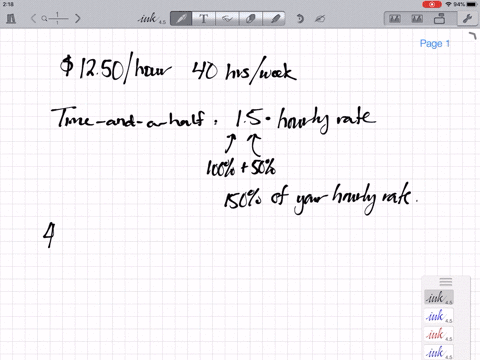 2:18
94%
.ink 4.5 T
Page 1
$12.50/hour 40 hrs/week
Time-and-a-half : 1.5 • hourly rate
100% + 50%
150% of your hourly rate.
4
.ink 4.5
.ink 4.5
.ink 4.5
.ink 4.5